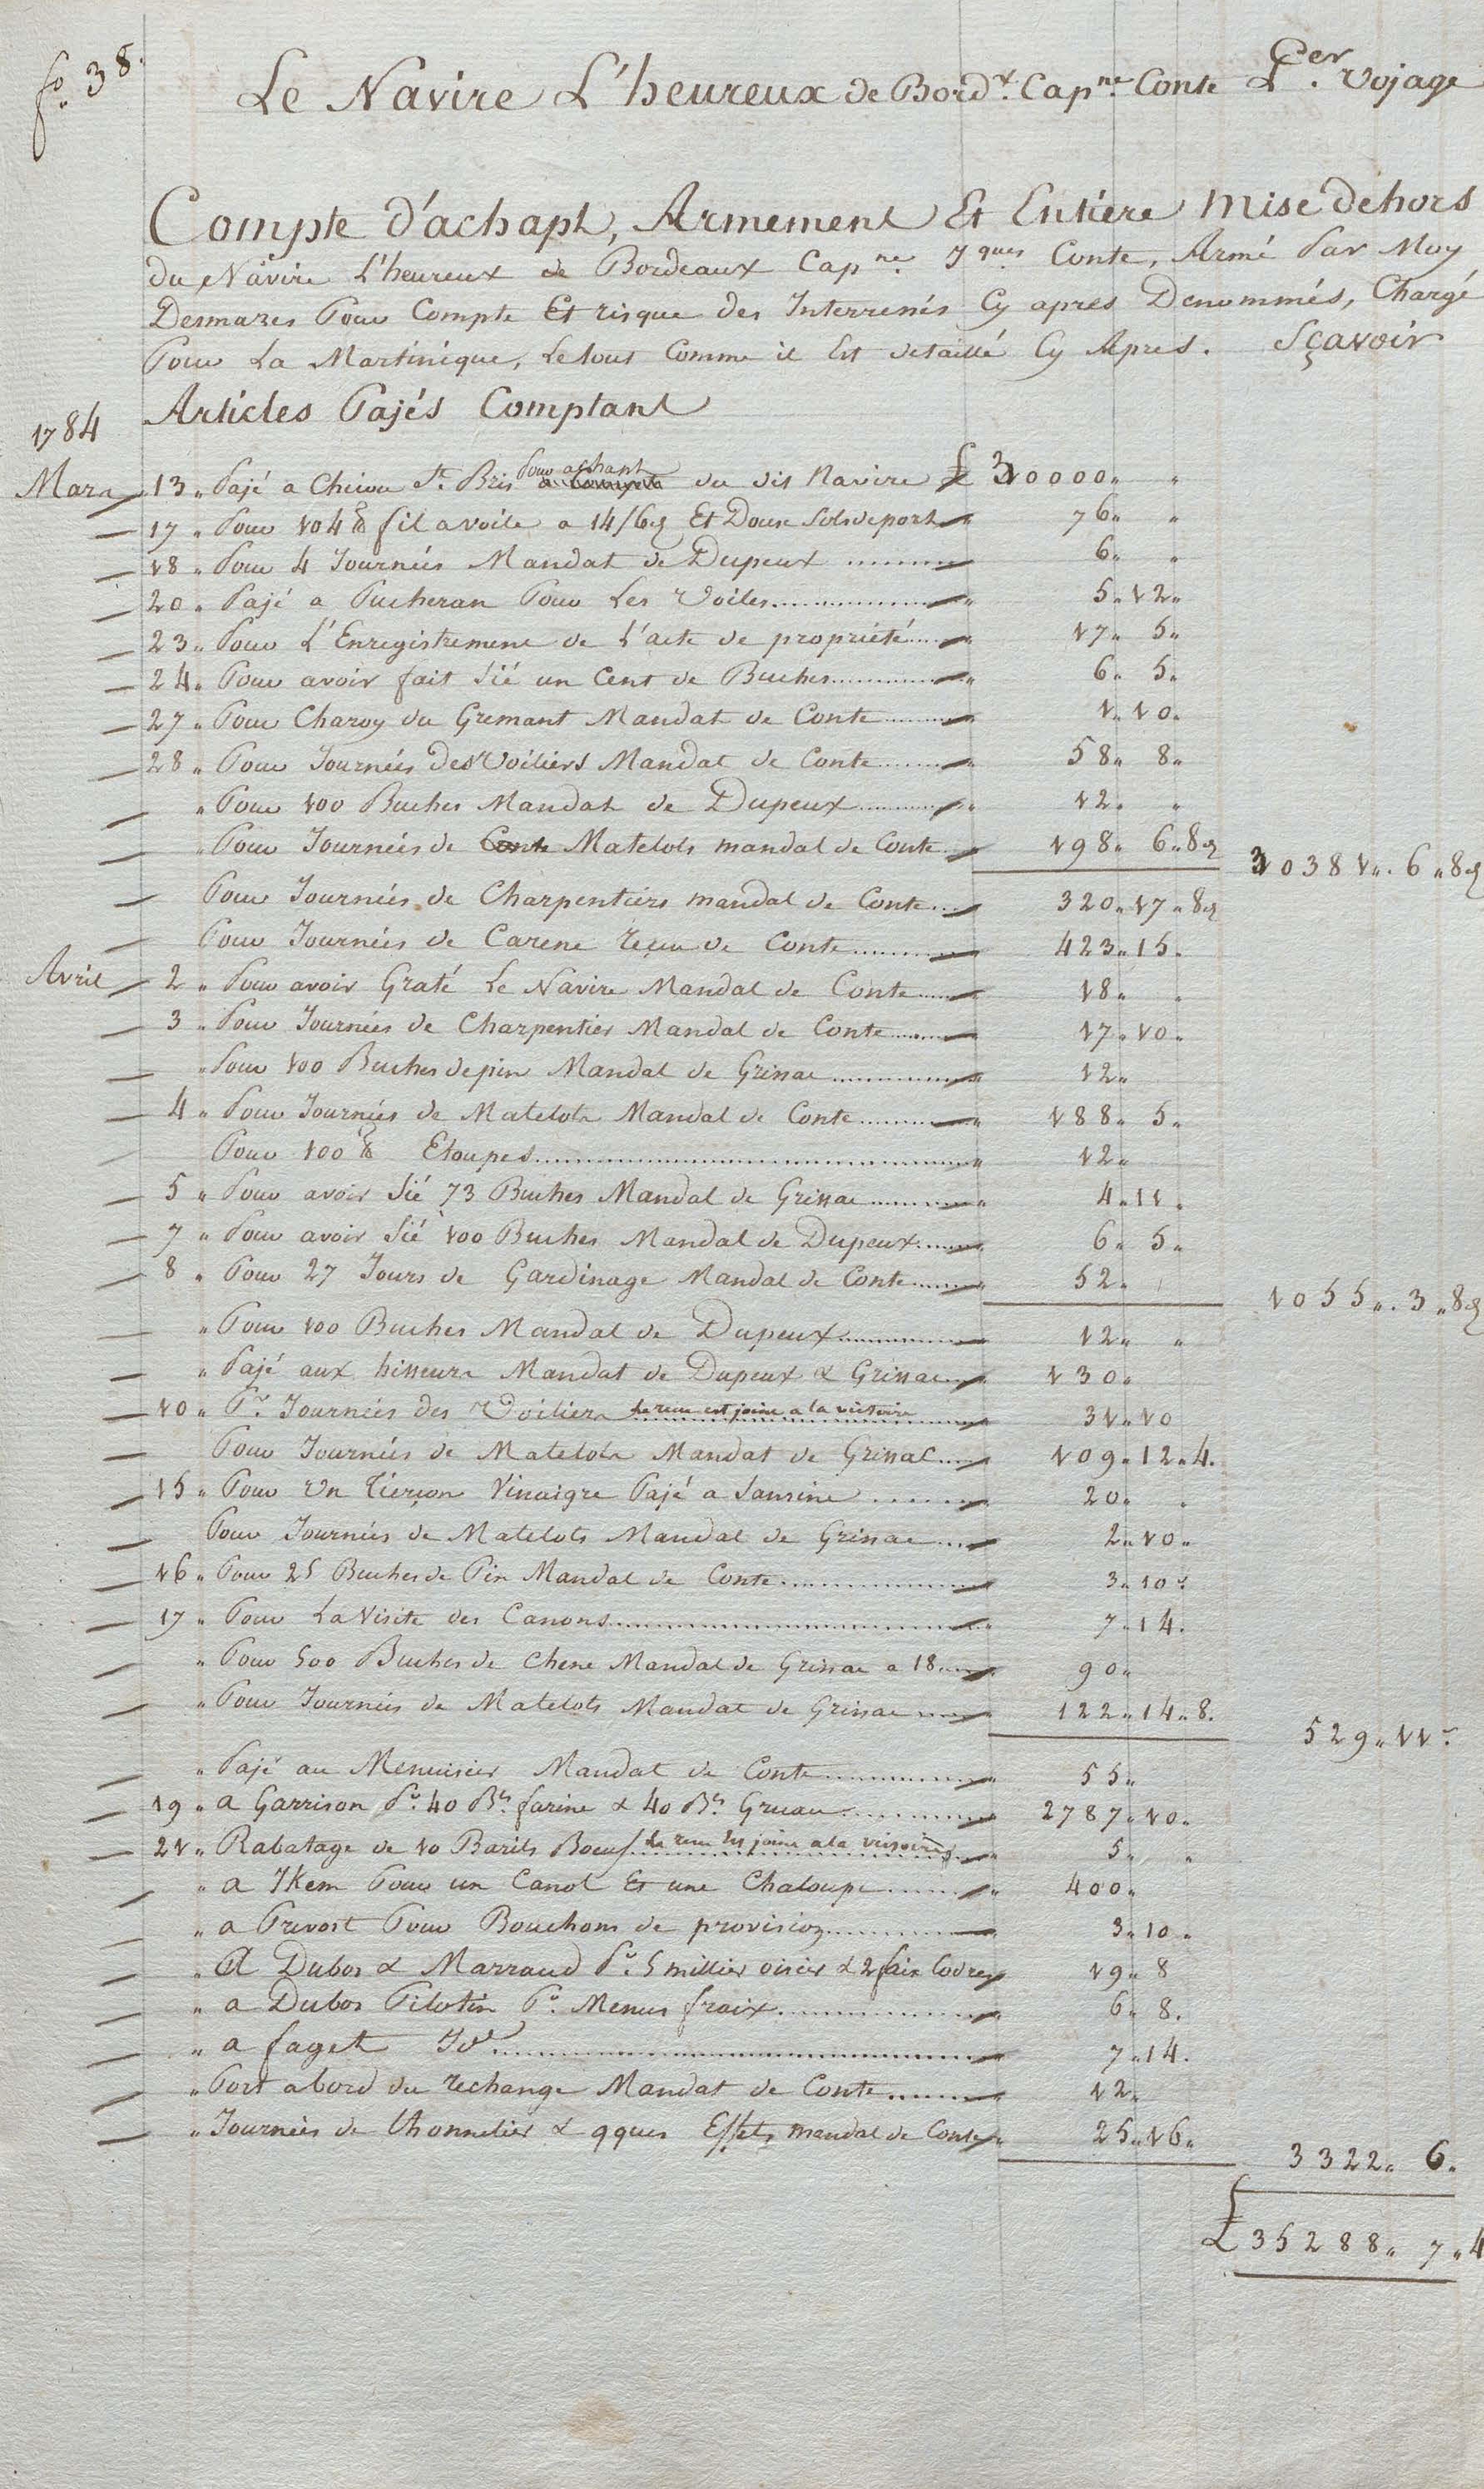 fo. 38.
Le Navire L'heureux de Bordx. Capne. Conte Ler. voyage
Compte d'achapt, Armement Et Entiere Mise dehors
du Navire L'heureux de Bordeaux Capne. Jques Conte, Armé Par Moy
Desmazes Pour Compte Et risque des Interressés Cy apres Denommés, Chargé
Pour La Martinique, Le tout Comme il Est detaillé Cy Apres. Sçavoir
Articles Pajés Comptant
1784
Mars 13 " Pajé a St. Bris Pour achapt a Compte du dit Navire £ 30000 " "
17 " Pour 104 lb fil a voile a 14/6d Et Douze Sols de port " 76 " "
18 " Pour 4 Journées Mandat de Dupeux " 6 " "
20 " Pajé a Pucheran Pour Les Voiles " 5 " 12 "
23 " Pour L'Enregistrement de L'acte de propriété " 17 " 5 "
24 " Pour avoir fait Sié un Cent de Buches " 6 " 5 "
27 " Pour Charoy du Gremant Mandat de Conte " 1 " 10 "
28 " Pour Journées Des Voiliers Mandat de Conte " 58 " 8 "
" Pour 100 Buches Mandat de Dupeux " 12 " "
" Pour Journées de Conte Matelots mandat de Conte " 198 " 6 " 8d 30381 " 6 " 8d
Pour Journées de Charpentiers mandat de Conte " 320 " 17 " 8d
Pour Journées de Carene reçu de Conte " 423 " 15 "
Avril 2 " Pour avoir Graté Le Navire Mandat de Conte " 18 " "
3 " Pour Journées de Charpentier Mandat de Conte " 17 " 10 "
" Pour 100 Buches de pin Mandat de Grissac " 12 "
4 " Pour Journées de Matelots Mandat de Conte " 188 " 5 "
Pour 100 lb Etoupes " 12 "
5 " Pour avoir Sié 73 Buches Mandat de Grissac " 4 " 11 "
7 " Pour avoir Sié 100 Buches Mandat de Dupeux " 6 " 5 "
8 " Pour 27 Jours de Gardinage Mandat de Conte " 52 " 1055 " 3 " 8d
" Pour 100 Buches Mandat de Dupeux " 12 " "
" Pajé aux hisseurs Mandat de Dupeux & Grissac " 130 "
10 " Pr. Journées des Voiliers le recu est joint a la victoire " 31 " 10
Pour Journées de Matelots Mandat de Grissac " 109 " 12 " 4.
15 " Pour Un Tierçon Vinaigre Pajé a Sansine " 20 " "
Pour Journées de Matelots Mandat de Grissac " 2 " 10 "
16 " Pour 25 Buches de Pin Mandat de Conte " 3 " 10 "
17 " Pour La Visite des Canons " 7 " 14.
" Pour 500 Buches de Chene Mandat de Grissac a 18 " 90 "
" Pour Journées de Matelots Mandat de Grissac " 122 " 14 " 8. 529 " 11 "
" Pajé au Menuisier Mandat de Conte " 55 "
19 " a Garrison Pr. 40 Bls farine & 40 Bls Gruau " 2787 " 10 "
21 " Rabatage de 10 Barils Boeuf Le recu Est joint a la victoire " 5 " "
" a Ikem Pour un Canot Et une Chaloupe " 400 "
" a Prevost Pour Bouchons de provision " 3 " 10 "
" A Dubos & Marraud Pr. 5 millier oisier & 2 faix Codres " 19 " 8
" a Dubos Pilotin Pr. Menus fraix " 6 " 8.
" a faget Id " 7 " 14.
" Port abord du rechange Mandat de Conte " 12 "
" Journées de thonnelier & qques Effets mandat de Conte " 25 " 16 " 3322 " 6 "
£ 35288 " 7 " 4